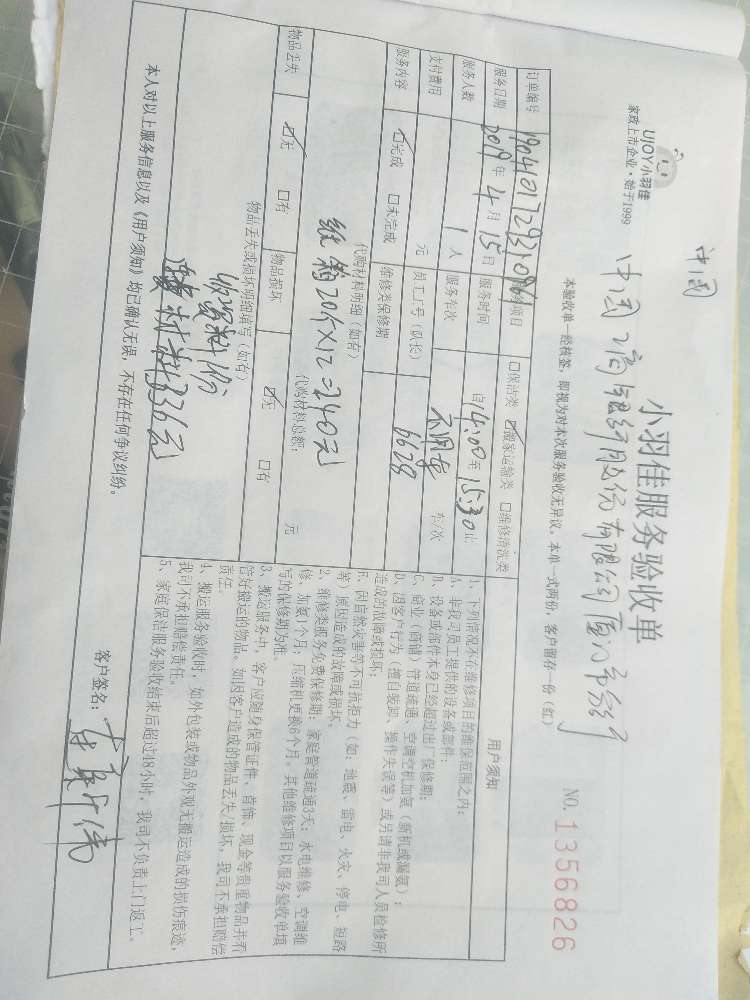 中国
UJOY小羽佳
家政上市企业·始于1999
小羽佳服务验收单
NO. 1356826
中国工商银行股份有限公司厦门市分行
本验收单一经核签，即视为对本次服务验收无异议。本单一式两份，客户留存一份（红）
订单编号 项目 □保洁类 ☑搬家运输类 □维修清洗类
服务日期 2019年4月15日 服务时间 自14:00至15:30止
服务人数 1人 服务车次 车/次
支付费用 元 员工工号（队长） 6628
服务内容 ☑完成 □未完成 维修类保修期
代购材料明细（如有）
纸箱20个×12=240元
代购材料总额： 元
物品丢失 ☑无 □有 物品损坏 ☑无 □有
物品丢失或损坏明细填写（如有）
材料336元
本人对以上服务信息以及《用户须知》均已确认无误，不存在任何争议纠纷。
用户须知
1、下列情况不在维修项目的维保范围之内：
A、非我司员工提供的设备或部件；
B、设备或部件本身已经超过出厂保修期；
C、商业（商铺）管道疏通、空调空机加氨（新机或漏氨）；
D、因客户行为（擅自装卸、操作失误等）或另请非我司人员检修所
造成的故障或损坏；
E、因自然灾害等不可抗拒力（如：地震、雷电、火灾、停电、短路
等）原因造成的故障或损坏。
2、维修类服务免费保修期：家庭管道疏通3天；水电维修、空调维
修、加氨1个月；压缩机更换6个月。其他维修项目以服务验收单填
写的保修期为准。
3、搬运服务中，客户应随身保管证件、首饰、现金等贵重物品并看
管好搬运的物品。如因客户造成的物品丢失/损坏，我司不承担赔偿
责任。
4、搬运服务验收时，如外包装或物品外观无搬运造成的损伤痕迹，
我司不承担赔偿责任。
5、家庭保洁服务验收结束后超过48小时，我司不负责上门返工。
客户签名：